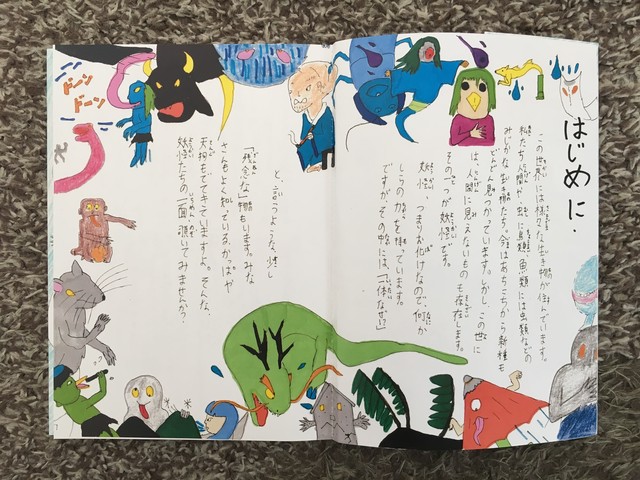 はじめに.
この世界には様々な生き物が住んでいます。
私たち人間や、虫に鳥類、魚類には虫類などの
みぢかな生き物たち。今はあちこちから新種も
どんどん見つかっています。しかし、この世に
は、人間に見えないものも存在します。
その一つが妖怪です。
妖怪 つまりお化けなので、何か
しらの力を持っています。
ですが、その中には、「一体なぜ!?」
と、言うような、少し
「残念な」物もいます。みな
さんもよく知っているかっぱや
天狗もでてきていますよ。そんな、
妖怪たちの一面、覗いてみませんか?
ドーン
ドーン